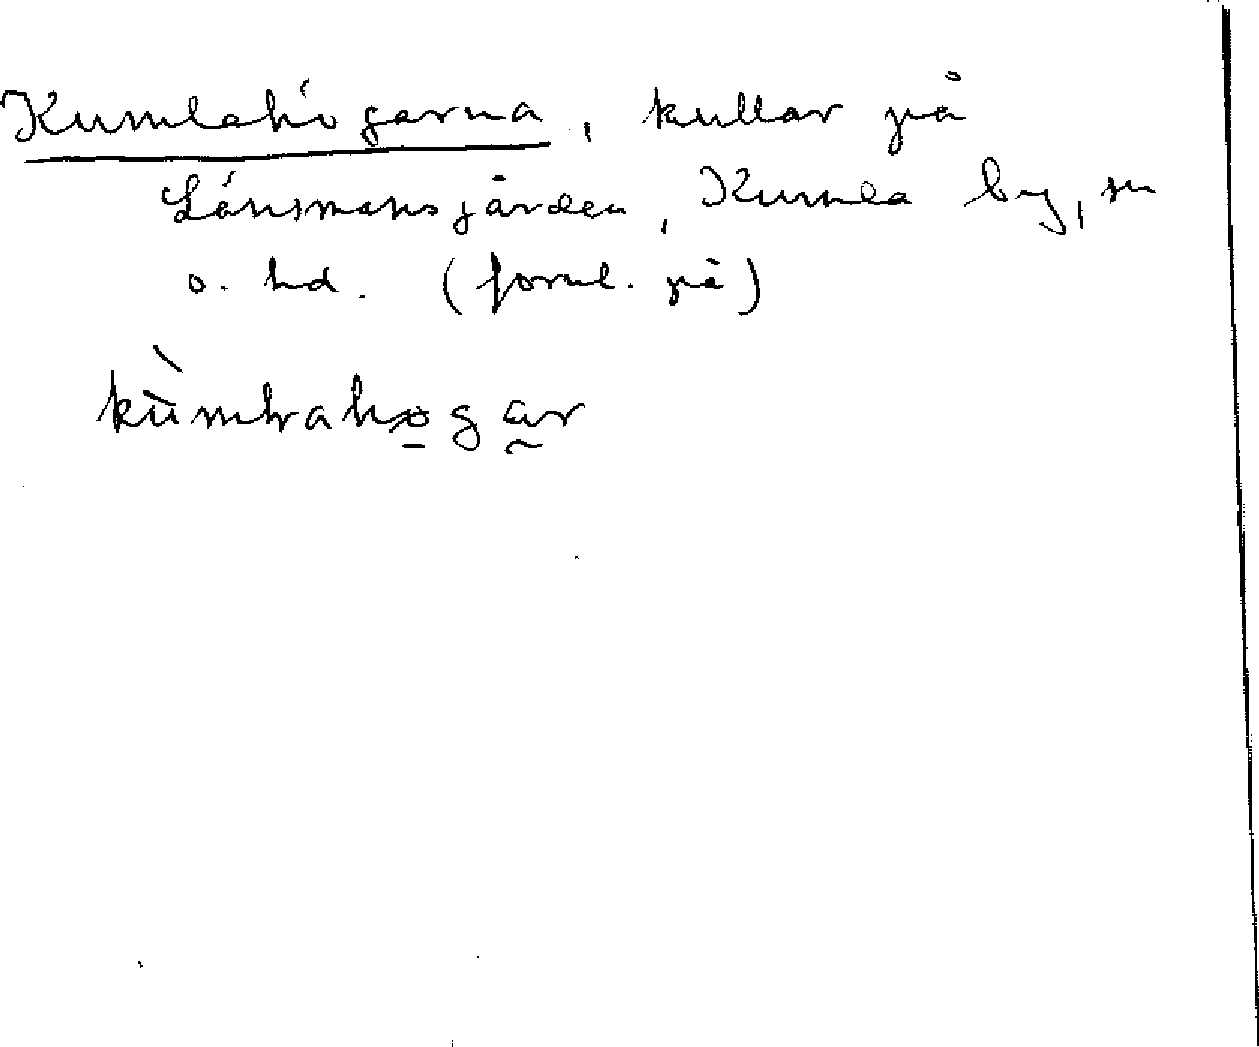 Kumlahögarna, kullar på
Länsmansgården, Kumla by, sn
o. hd. (fornl. på)